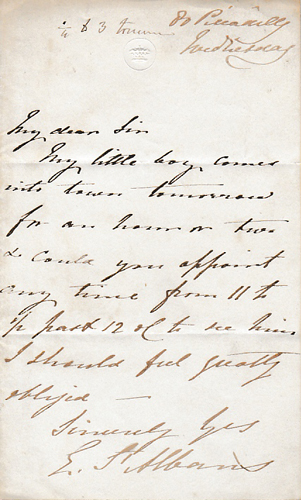 80 Piccadilly
Wednesday
My dear Sir
My little boy comes
into town tomorrow
for an hour or two
& could you appoint
any time from 11 to
½ past 12 to see him
I should feel greatly
obliged —
Sincerely Yrs
E. St Albans